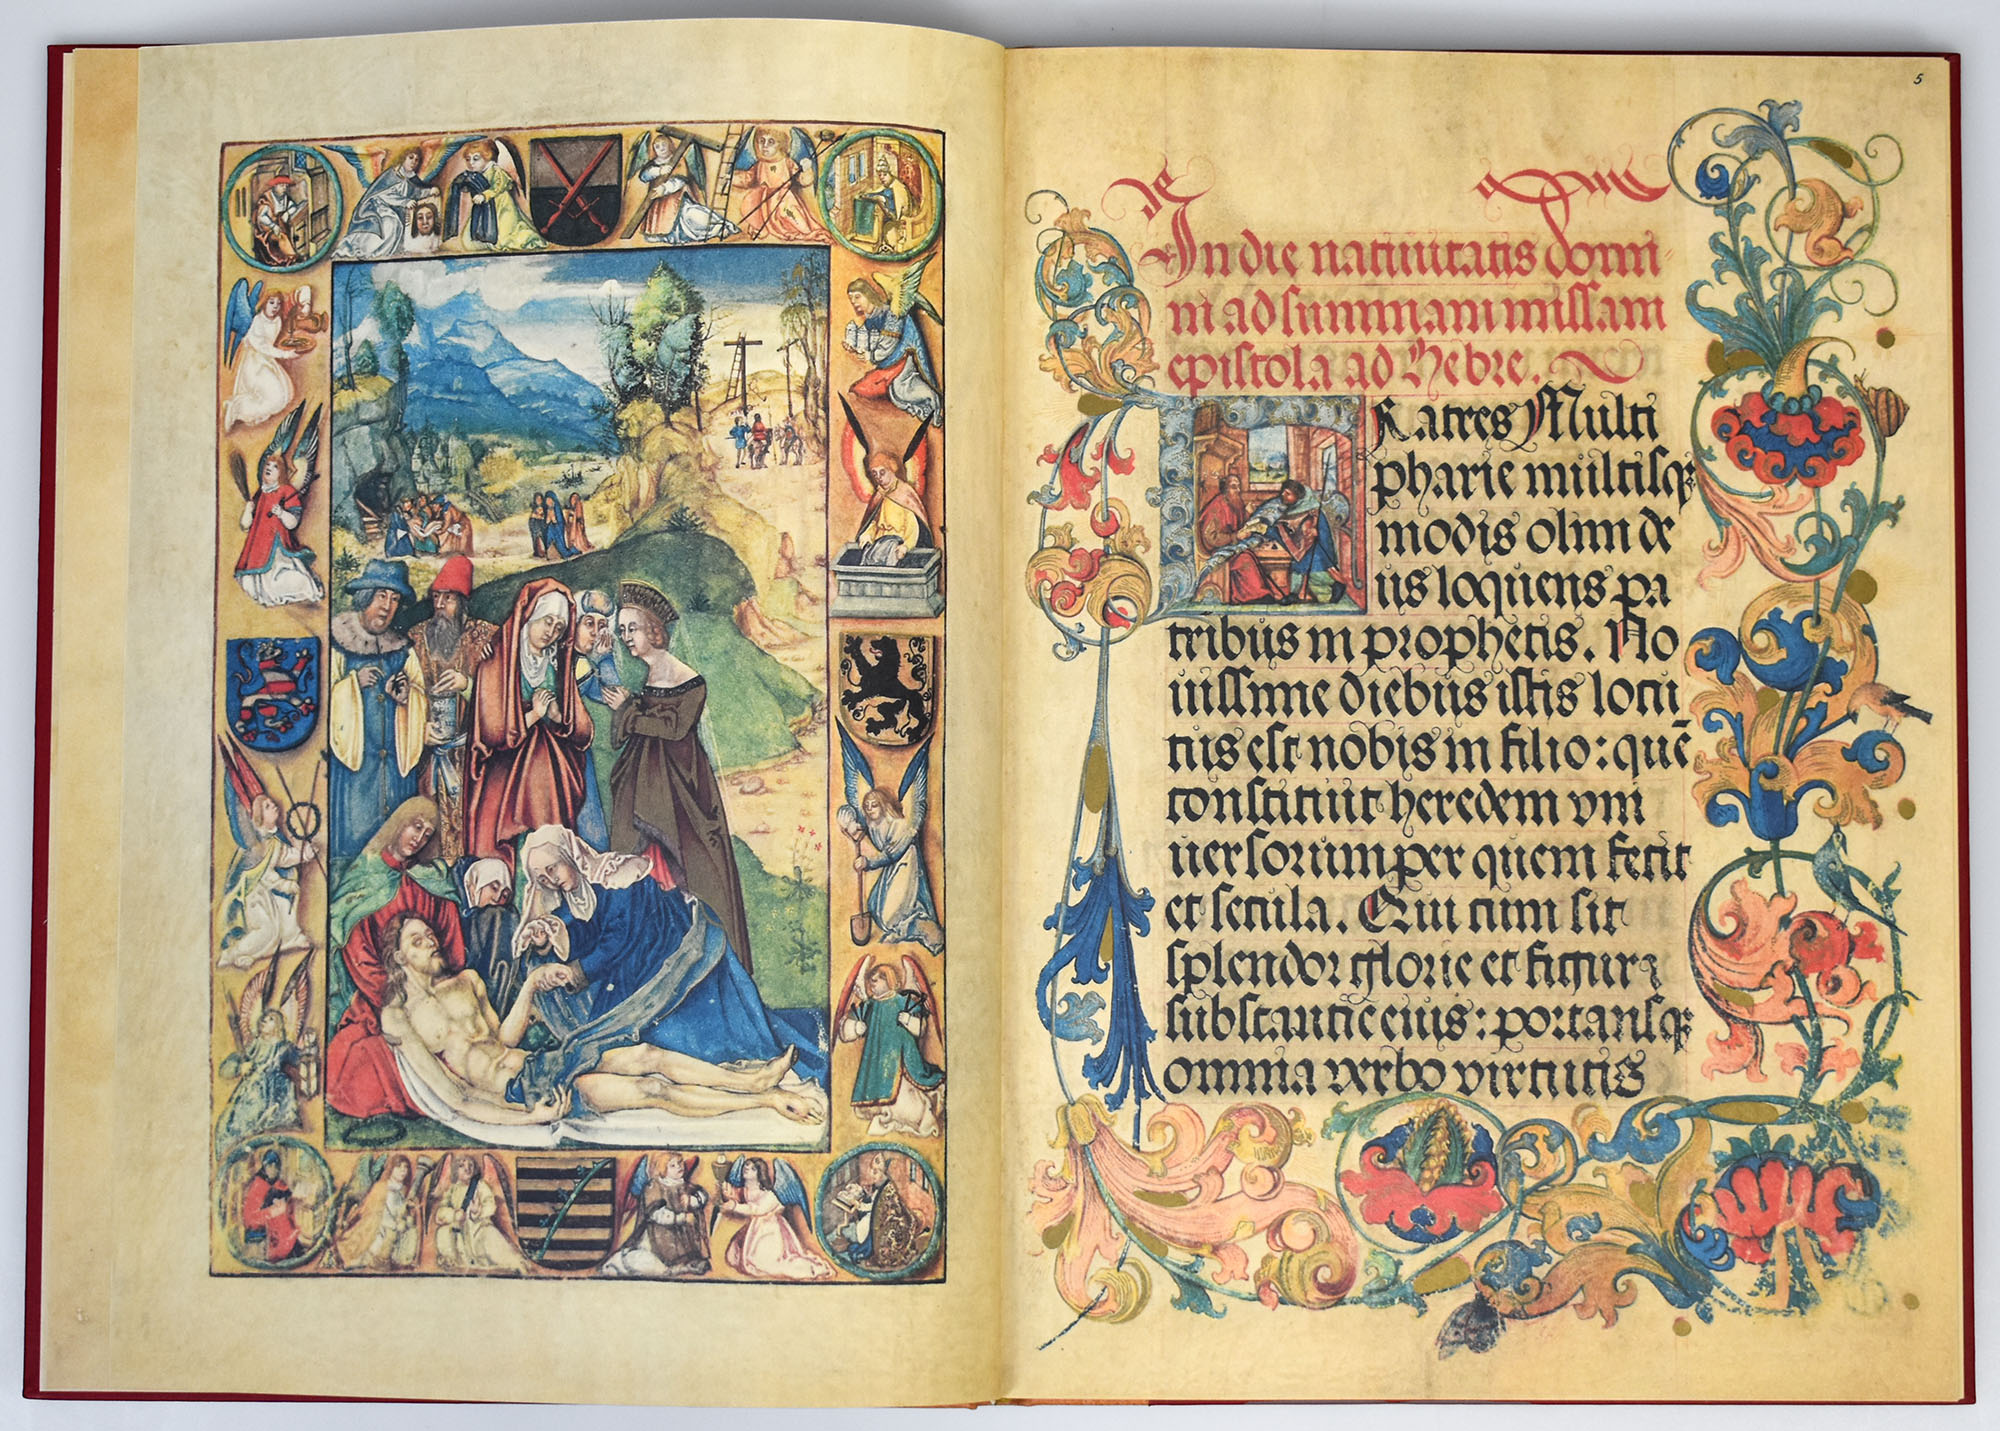 5
In die natiuitatis domi
ni ad summam missam
epistola ad Hebre.
Fratres Multi
pharie multisq;
modis olim de
us loquens pa
tribus in prophetis. No
uissime diebus istis locu
tus est nobis in filio: quē
constituit heredem vni
uersorum per quem fecit
et secula. Qui cum sit
splendor glorie et figura
substantie eius: portansq;
omnia verbo virtutis